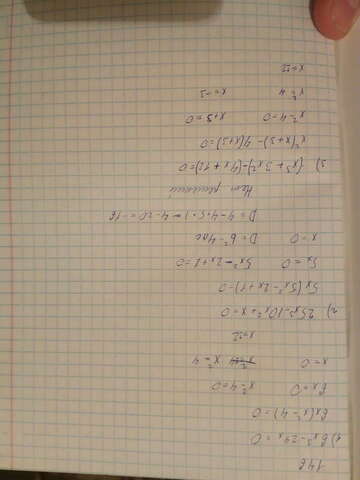 146
1) 6x³-24x=0
6x(x²-4)=0
6x=0 x²-4=0
x=0 x²=4
x=±2
2) 25x³-10x²+x=0
5x(5x²-2x+1)=0
5x=0 5x²-2x+1=0
x=0 D=b²-4ac
D=4-4·5·1=4-20=-16
Нет решений
3) (x³+3x²)-(4x+12)=0
x²(x+3)-4(x+3)=0
x²-4=0 x+3=0
x²=4 x=-3
x=±2